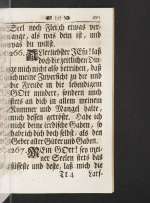 Seel noch Fleisch etwas ver-
lange, als was dein ist, und
was du wilst.
266. Allerliebster JEsu! laß
doch die zeitlichen Din-
ge mich nicht also betrüben, daß
ich meine Zuversicht zu dir und
die Freude in die lebendigen
GOtt mindere, sondern und
stets an dich in allem meinem
Kummer und Mangel halte,
mich dessen getröste. Habe ich
gleich deine irrdische Gaben, so
hab ich dich doch selbst als den
Geber aller Güter und Gaben.
267. MEin GOtt! sey mei-
ner Seelen stets das
süsseste und beste, laß mich die
Tt 4 Eitel-